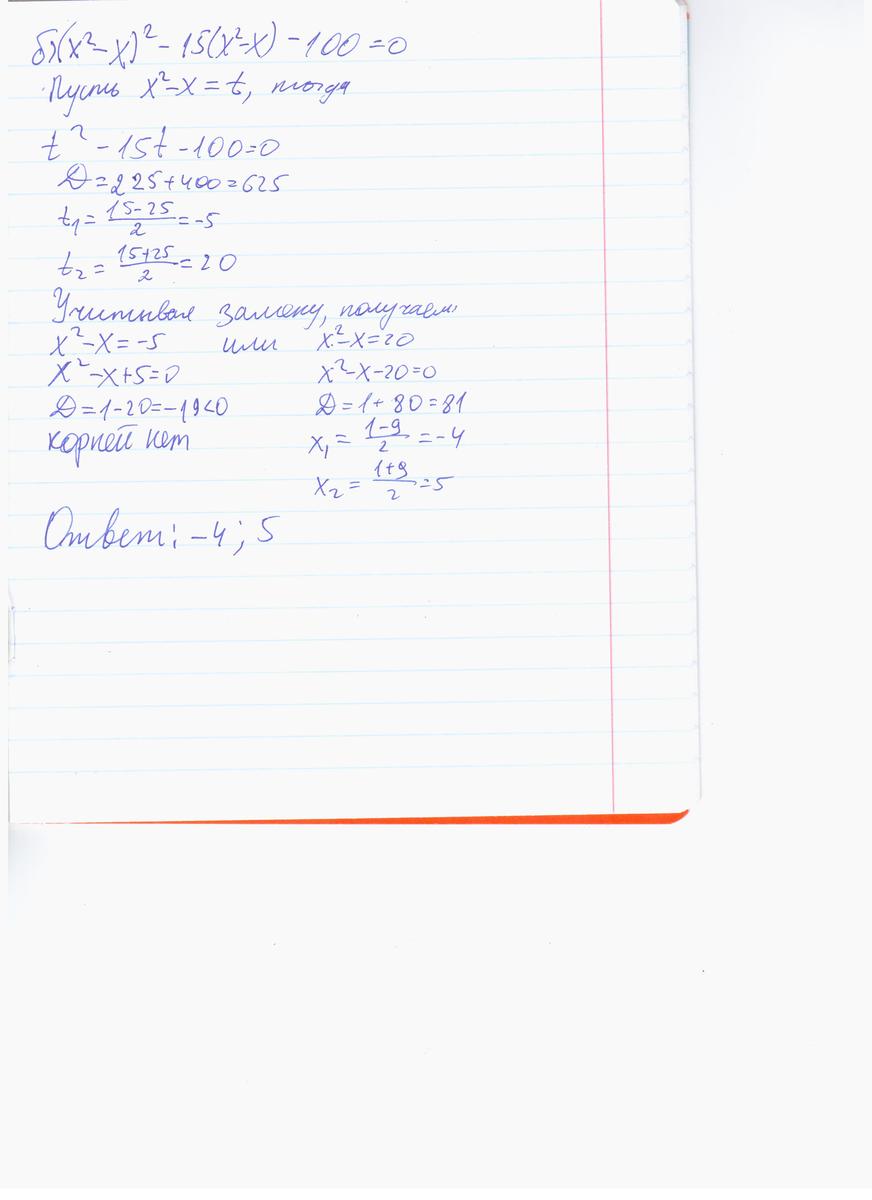 б)(x²-x)² - 15(x²-x) - 100 = 0
Пусть x²-x = t, тогда
t² - 15t - 100 = 0
D = 225 + 400 = 625
t₁ = (15-25)/2 = -5
t₂ = (15+25)/2 = 20
Учитывая замену, получаем:
x²-x = -5 или x²-x = 20
x²-x+5=0 x²-x-20=0
D = 1-20 = -19<0 D = 1+80 = 81
корней нет x₁ = (1-9)/2 = -4
x₂ = (1+9)/2 = 5
Ответ: -4; 5